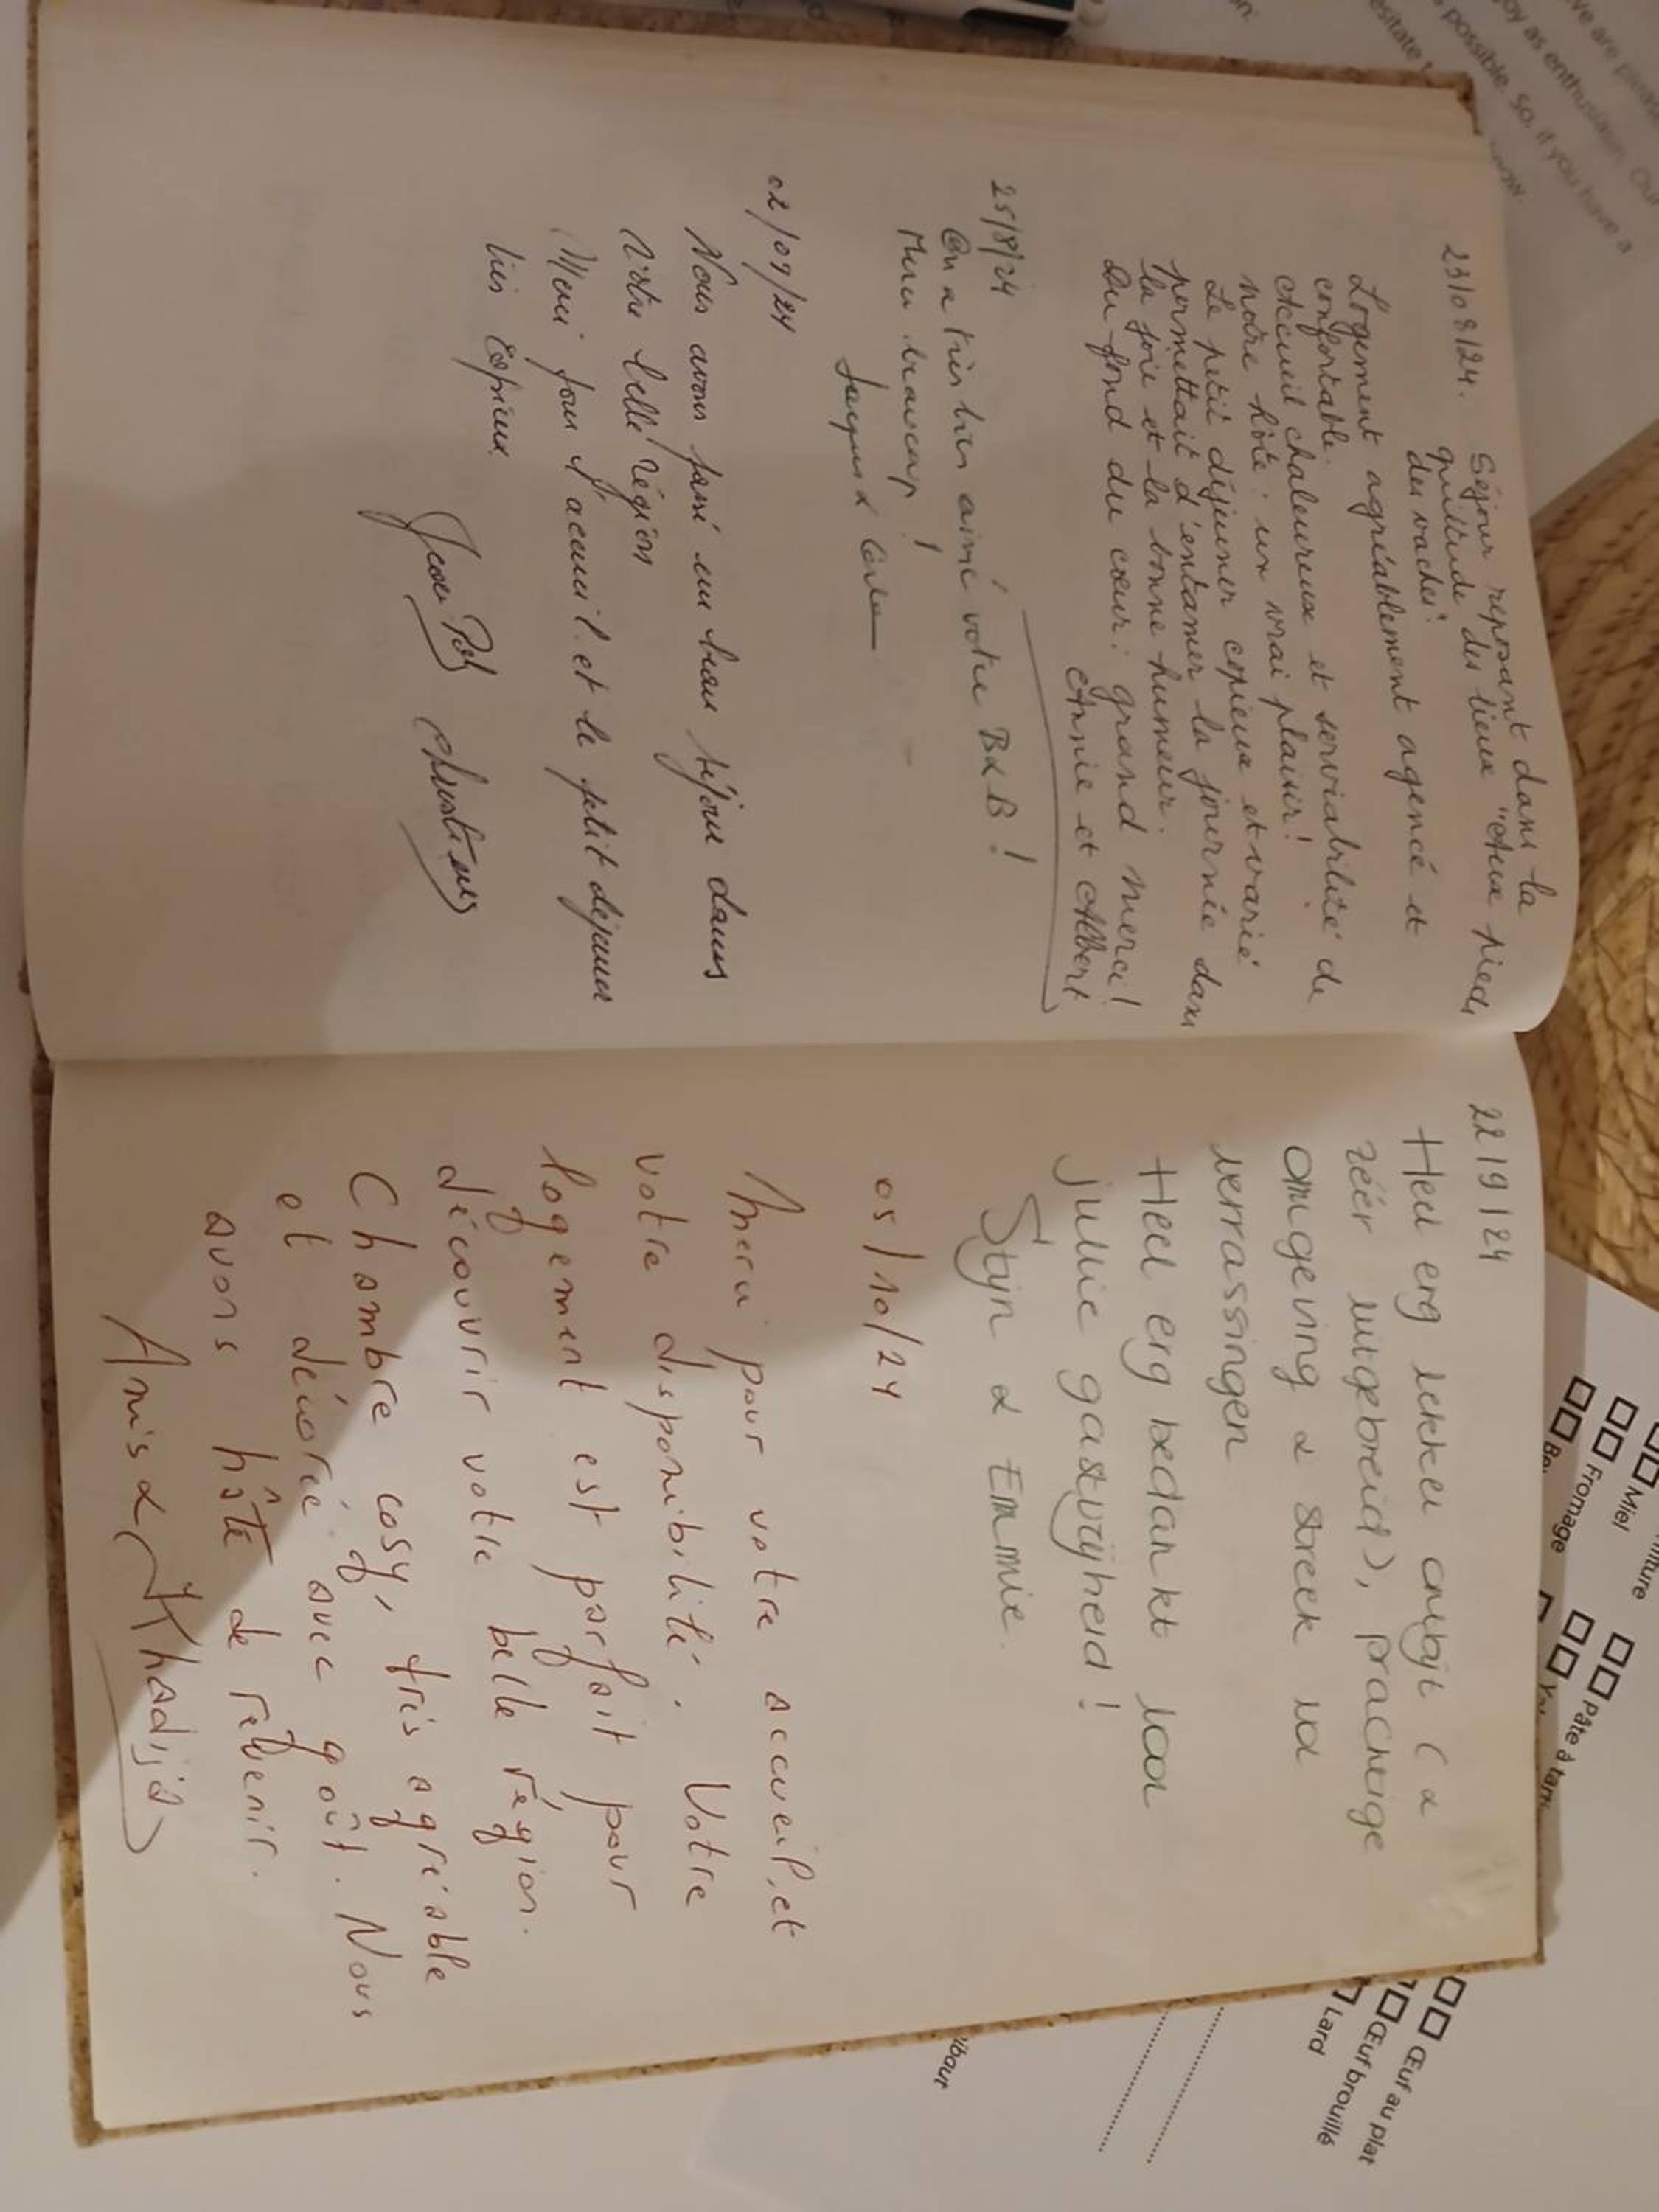 23/08/24. Séjour reposant dans la
quiétude des lieux "Aux pieds
des vaches"
Logement agréablement agencé et
confortable.
Accueil chaleureux et serviabilité de
notre hôte : un vrai plaisir!
Le petit déjeuner copieux et varié
permettait d'entamer la journée dans
la joie et la bonne humeur.
Du fond du cœur : grand merci!
Annie et Albert
25/8/24
On a très bien aimé votre B&B!
Merci beaucoup!
02/09/24
Nous avons passé un beau séjour dans
Votre belle région
Merci pour l'accueil. et le petit déjeuner
très copieux
22/9/24
Heel erg lekker ontbijt (&
zéér uitgebreid), prachtige
omgeving & streek vol
verrassingen
Heel erg bedankt voor
jullie gastvrijheid!
Stijn & Emmie.
05/10/24
Merci pour votre accueil, et
votre disponibilité. Votre
logement est parfait pour
découvrir votre belle région.
Chambre cosy, très agréable
et décoré avec goût. Nous
avons hâte de revenir.
Anis & Khadija
Miel
Fromage
Pâte à tart
Œuf au plat
Œuf brouillé
Lard
ve are pleas
oy as enthusiasm. Our
possible. So, if you have a
esitate t